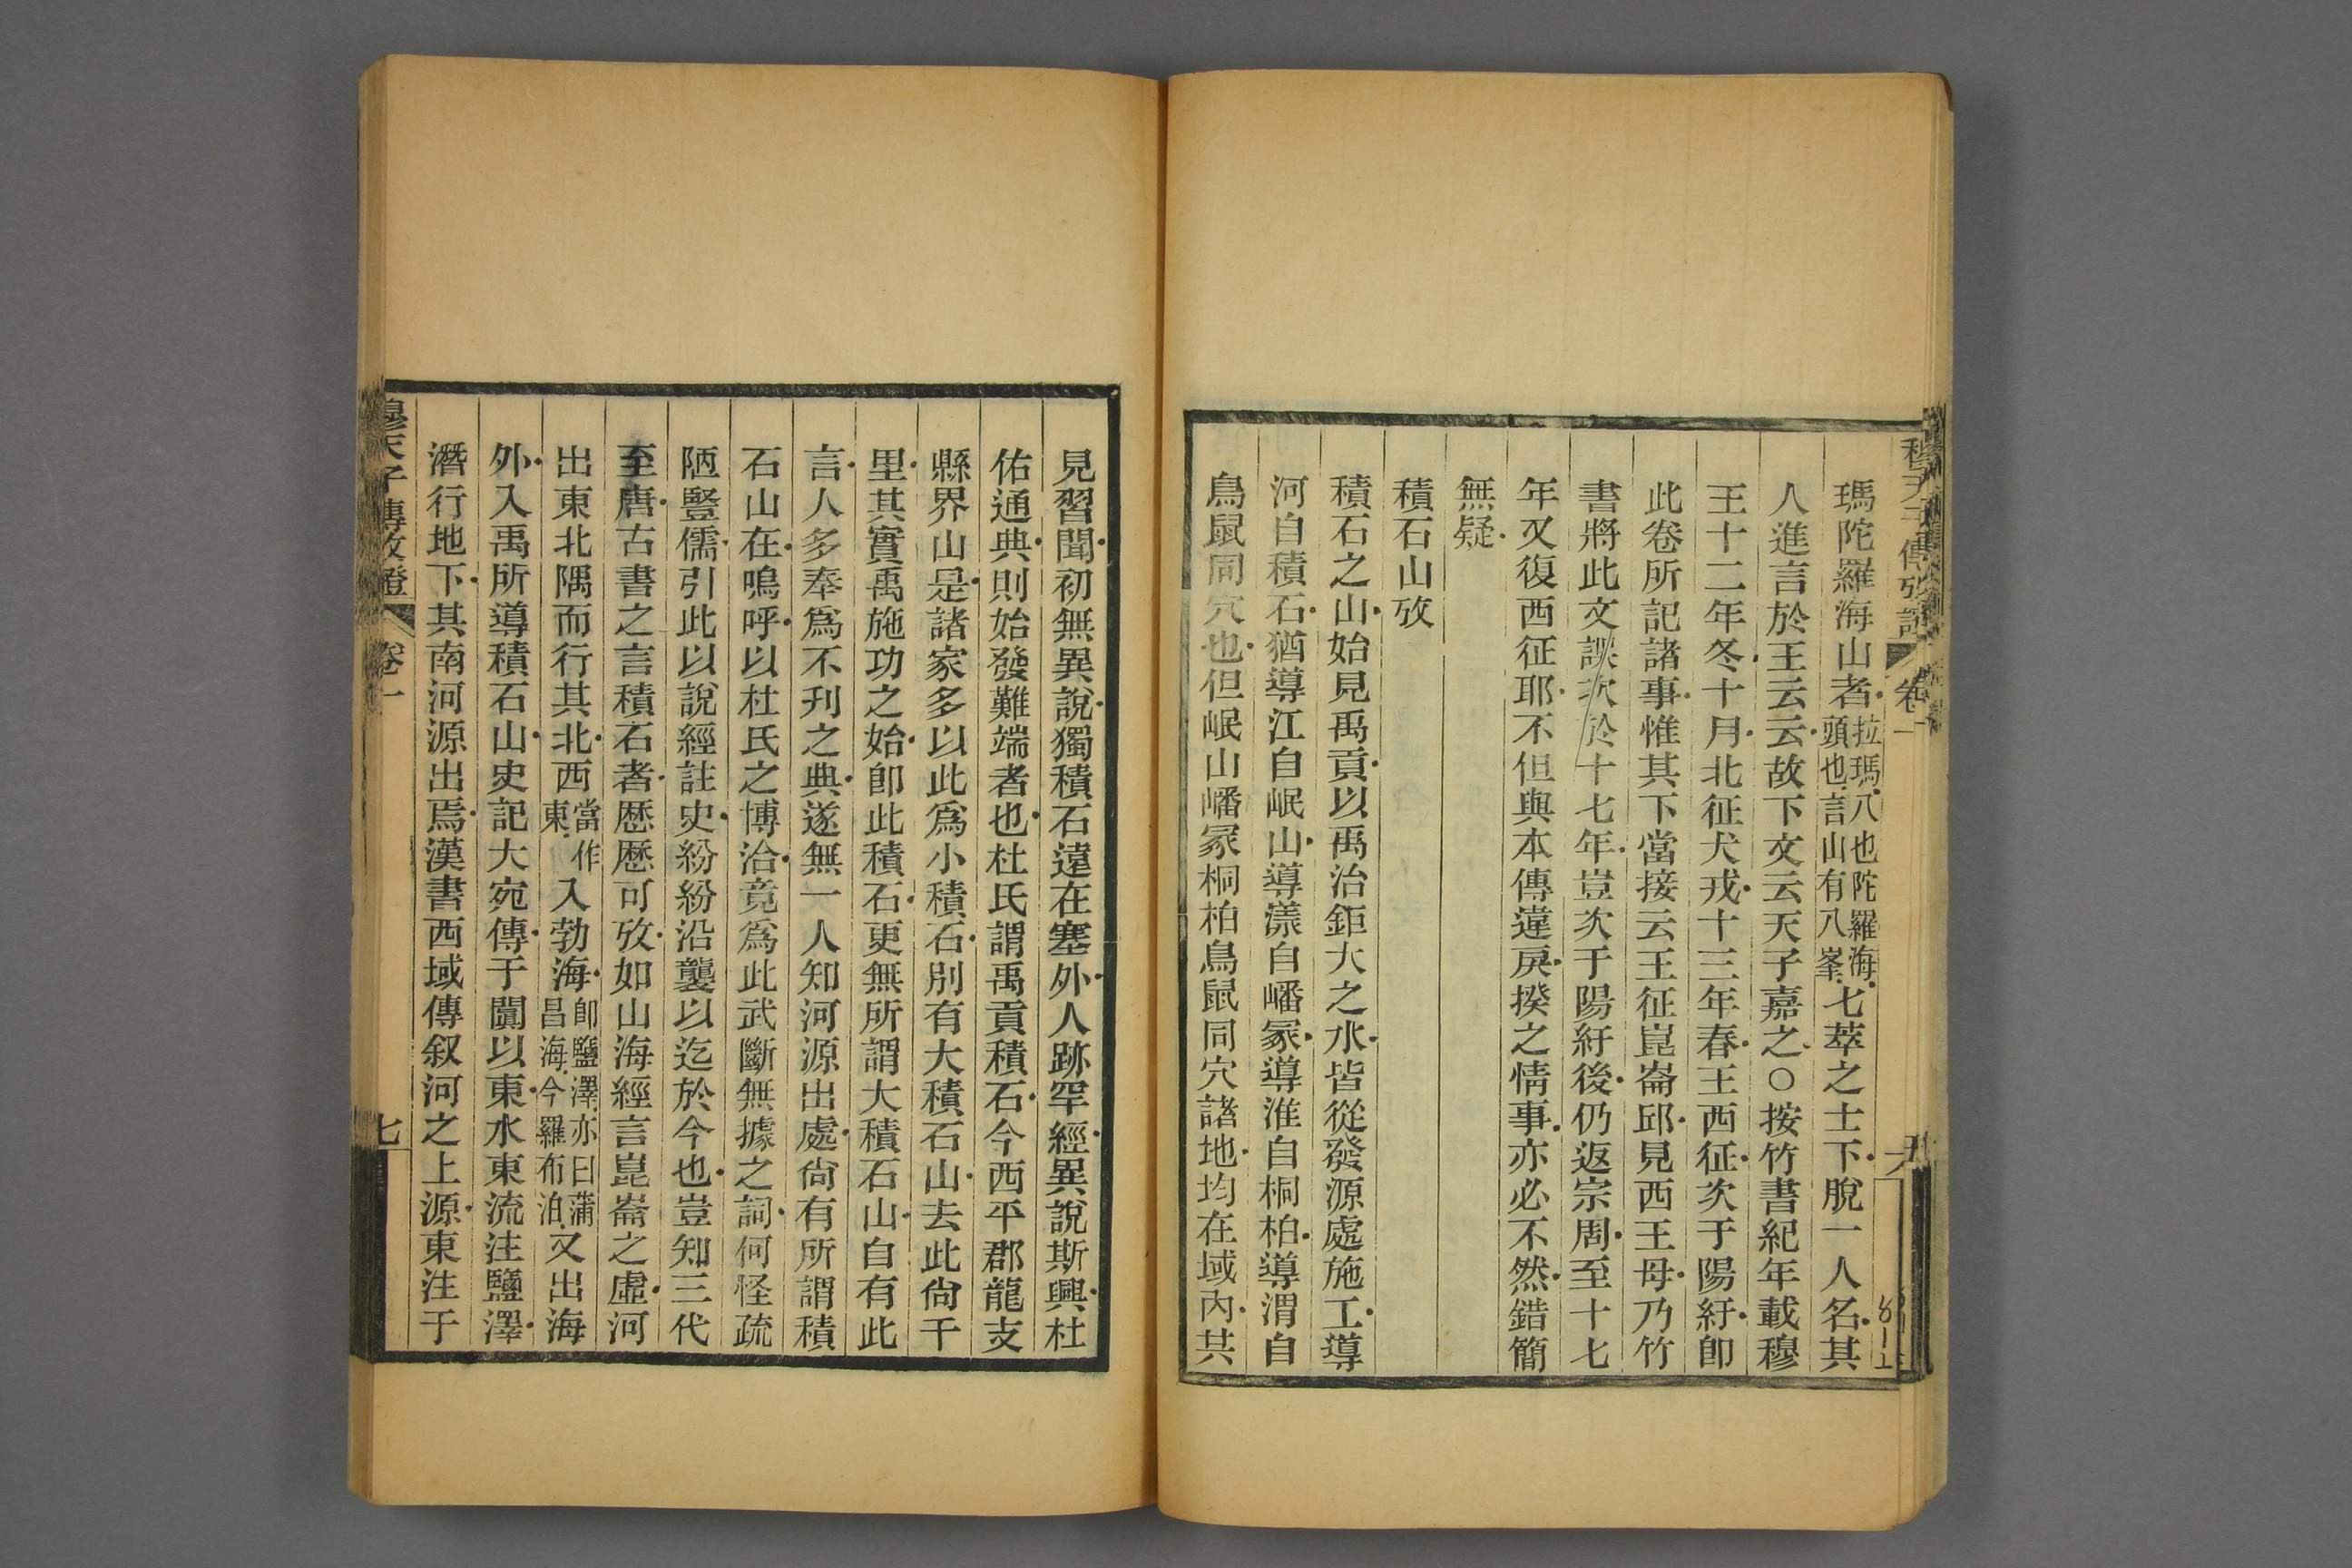 穆天子傳攷證 卷一
瑪陀羅海山者拉瑪八也陀羅海頭也言山有八峯七萃之士下脫一人名其
人進言於王云云故下文云天子嘉之○按竹書紀年載穆
王十二年冬十月北征犬戎十三年春王西征次于陽紆卽
此卷所記諸事惟其下當接云王征崑崙邱見西王母乃竹
書將此文誤次於十七年豈次于陽紆後仍返宗周至十七
年又復西征耶不但與本傳違戾揆之情事亦必不然錯簡
無疑
積石山攷
積石之山始見禹貢以禹治鉅大之水皆從發源處施工導
河自積石猶導江自岷山導漾自嶓冢導淮自桐柏導渭自
鳥鼠同穴也但岷山嶓冢桐柏鳥鼠同穴諸地均在域內共
見習聞初無異說獨積石遠在塞外人跡罕經異說斯興杜
佑通典則始發難端者也杜氏謂禹貢積石今西平郡龍支
縣界山是諸家多以此爲小積石別有大積石山去此尙千
里其實禹施功之始卽此積石更無所謂大積石山自有此
言人多奉爲不刊之典遂無一人知河源出處尙有所謂積
石山在嗚呼以杜氏之博洽竟爲此武斷無據之詞何怪疏
陋豎儒引此以說經註史紛紛沿襲以迄於今也豈知三代
至唐古書之言積石者歷歷可攷如山海經言崑崙之虛河
出東北隅而行其北西當作東入勃海卽鹽澤亦曰蒲昌海今羅布泊又出海
外入禹所導積石山史記大宛傳于闐以東水東流注鹽澤
潛行地下其南河源出焉漢書西域傳叙河之上源東注于
穆天子傳攷證 卷一 七